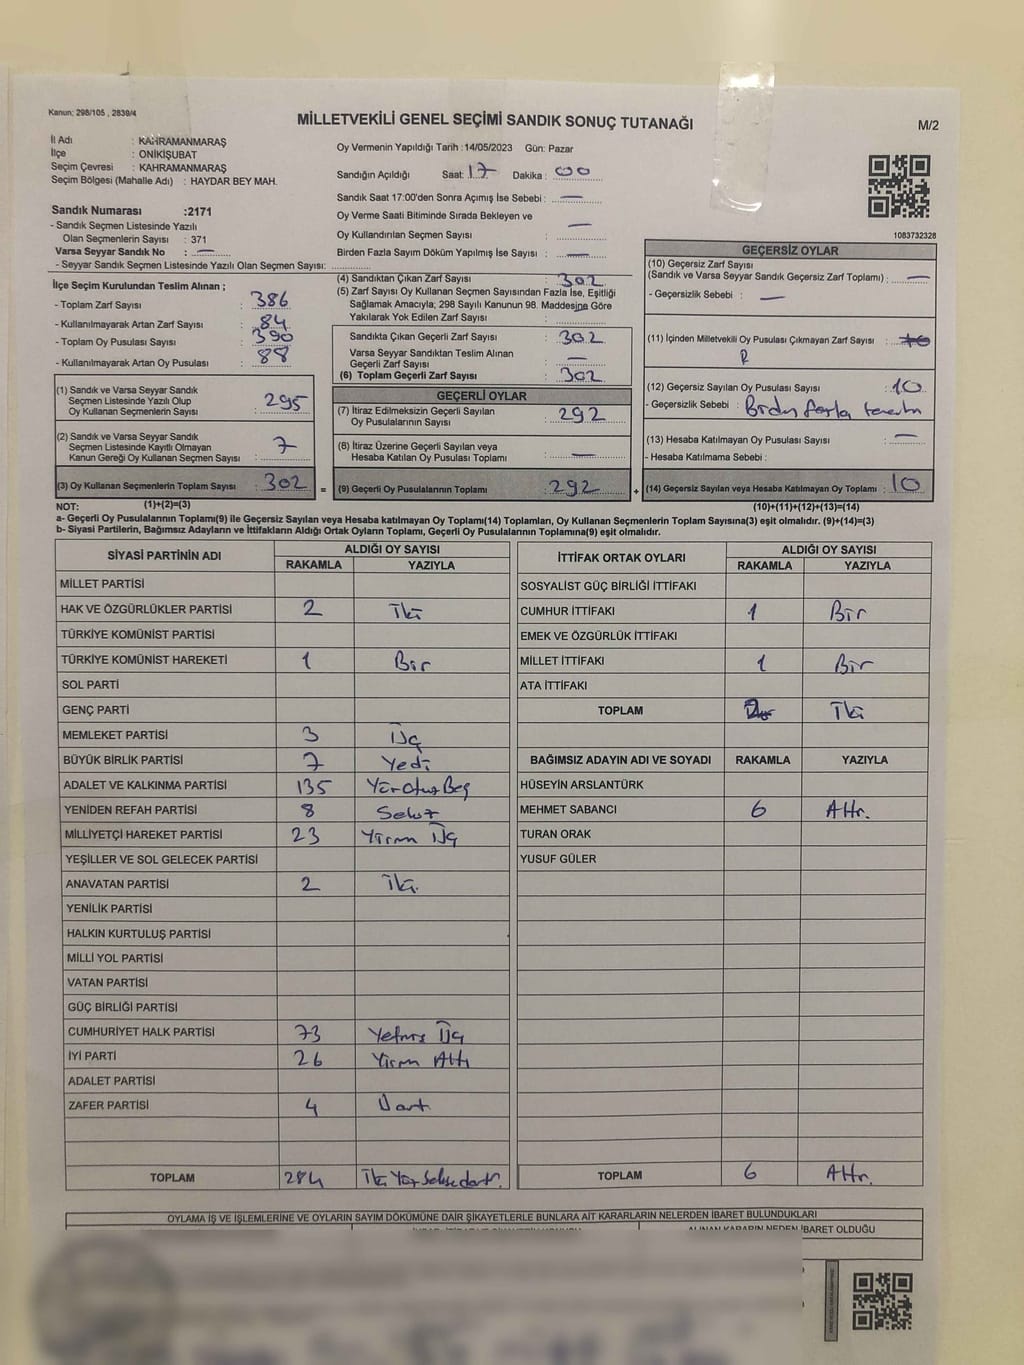 Kanun: 298/105 , 2839/4
MİLLETVEKİLİ GENEL SEÇİMİ SANDIK SONUÇ TUTANAĞI
M/2
İl Adı : KAHRAMANMARAŞ
İlçe : ONİKİŞUBAT
Seçim Çevresi : KAHRAMANMARAŞ
Seçim Bölgesi (Mahalle Adı) : HAYDAR BEY MAH.
Sandık Numarası :2171
- Sandık Seçmen Listesinde Yazılı
Olan Seçmenlerin Sayısı : 371
Varsa Seyyar Sandık No : —
- Seyyar Sandık Seçmen Listesinde Yazılı Olan Seçmen Sayısı:
İlçe Seçim Kurulundan Teslim Alınan ;
- Toplam Zarf Sayısı : 386
- Kullanılmayarak Artan Zarf Sayısı : 84
- Toplam Oy Pusulası Sayısı : 390
- Kullanılmayarak Artan Oy Pusulası : 88
(1) Sandık ve Varsa Seyyar Sandık
Seçmen Listesinde Yazılı Olup
Oy Kullanan Seçmenlerin Sayısı : 295
(2) Sandık ve Varsa Seyyar Sandık
Seçmen Listesinde Kayıtlı Olmayan
Kanun Gereği Oy Kullanan Seçmen Sayısı : 7
(3) Oy Kullanan Seçmenlerin Toplam Sayısı : 302 =
Oy Vermenin Yapıldığı Tarih :14/05/2023 Gün: Pazar
Sandığın Açıldığı Saat: 17 Dakika : 00
Sandık Saat 17:00'den Sonra Açımış İse Sebebi : —
Oy Verme Saati Bitiminde Sırada Bekleyen ve
Oy Kullandırılan Seçmen Sayısı : —
Birden Fazla Sayım Döküm Yapılmış İse Sayısı : —
(4) Sandıktan Çıkan Zarf Sayısı : 302
(5) Zarf Sayısı Oy Kullanan Seçmen Sayısından Fazla İse, Eşitliği
Sağlamak Amacıyla; 298 Sayılı Kanunun 98. Maddesine Göre
Yakılarak Yok Edilen Zarf Sayısı :
Sandıkta Çıkan Geçerli Zarf Sayısı : 302
Varsa Seyyar Sandıktan Teslim Alınan
Geçerli Zarf Sayısı : —
(6) Toplam Geçerli Zarf Sayısı : 302
GEÇERLİ OYLAR
(7) İtiraz Edilmeksizin Geçerli Sayılan
Oy Pusulalarının Sayısı : 292
(8) İtiraz Üzerine Geçerli Sayılan veya
Hesaba Katılan Oy Pusulası Toplamı : —
(9) Geçerli Oy Pusulalarının Toplamı : 292 +
1083732328
GEÇERSİZ OYLAR
(10) Geçersiz Zarf Sayısı
(Sandık ve Varsa Seyyar Sandık Geçersiz Zarf Toplamı) : —
- Geçersizlik Sebebi : —
(11) İçinden Milletvekili Oy Pusulası Çıkmayan Zarf Sayısı :
(12) Geçersiz Sayılan Oy Pusulası Sayısı : 10
- Geçersizlik Sebebi :
(13) Hesaba Katılmayan Oy Pusulası Sayısı : —
- Hesaba Katılmama Sebebi :
(14) Geçersiz Sayılan veya Hesaba Katılmayan Oy Toplamı : 10
NOT: (1)+(2)=(3) (10)+(11)+(12)+(13)=(14)
a- Geçerli Oy Pusulalarının Toplamı(9) ile Geçersiz Sayılan veya Hesaba katılmayan Oy Toplamı(14) Toplamları, Oy Kullanan Seçmenlerin Toplam Sayısına(3) eşit olmalıdır. (9)+(14)=(3)
b- Siyasi Partilerin, Bağımsız Adayların ve İttifakların Aldığı Ortak Oyların Toplamı, Geçerli Oy Pusulalarının Toplamına(9) eşit olmalıdır.
SİYASİ PARTİNİN ADI ALDIĞI OY SAYISI
RAKAMLA YAZIYLA
MİLLET PARTİSİ
HAK VE ÖZGÜRLÜKLER PARTİSİ 2 İki
TÜRKİYE KOMÜNİST PARTİSİ
TÜRKİYE KOMÜNİST HAREKETİ 1 Bir
SOL PARTİ
GENÇ PARTİ
MEMLEKET PARTİSİ 3 Üç
BÜYÜK BİRLİK PARTİSİ 7 Yedi
ADALET VE KALKINMA PARTİSİ 135 YüzOtuzBeş
YENİDEN REFAH PARTİSİ 8 Sekiz
MİLLİYETÇİ HAREKET PARTİSİ 23 Yirmi Üç
YEŞİLLER VE SOL GELECEK PARTİSİ
ANAVATAN PARTİSİ 2 İki.
YENİLİK PARTİSİ
HALKIN KURTULUŞ PARTİSİ
MİLLİ YOL PARTİSİ
VATAN PARTİSİ
GÜÇ BİRLİĞİ PARTİSİ
CUMHURİYET HALK PARTİSİ 73 Yetmiş Üç
İYİ PARTİ 26 Yirmi Altı
ADALET PARTİSİ
ZAFER PARTİSİ 4 Dört
TOPLAM 284 İki Yüz Seksedört.
İTTİFAK ORTAK OYLARI ALDIĞI OY SAYISI
RAKAMLA YAZIYLA
SOSYALİST GÜÇ BİRLİĞİ İTTİFAKI
CUMHUR İTTİFAKI 1 Bir
EMEK VE ÖZGÜRLÜK İTTİFAKI
MİLLET İTTİFAKI 1 Bir
ATA İTTİFAKI
TOPLAM 2 İki
BAĞIMSIZ ADAYIN ADI VE SOYADI RAKAMLA YAZIYLA
HÜSEYİN ARSLANTÜRK
MEHMET SABANCI 6 Altı.
TURAN ORAK
YUSUF GÜLER
TOPLAM 6 Altı.
OYLAMA İŞ VE İŞLEMLERİNE VE OYLARIN SAYIM DÖKÜMÜNE DAİR ŞİKAYETLERLE BUNLARA AİT KARARLARIN NELERDEN İBARET BULUNDUKLARI
ALINAN KARARIN NEDEN İBARET OLDUĞU